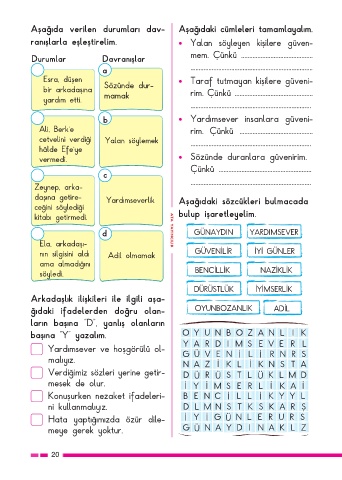 Aşağıda verilen durumları dav-
ranışlarla eşleştirelim.
Durumlar Davranışlar
Esra, düşen
bir arkadaşına
yardım etti.
a
Sözünde dur-
mamak
Ali, Berk'e
cetvelini verdiği
hâlde Efe'ye
vermedi.
b
Yalan söylemek
Zeynep, arka-
daşına getire-
ceğini söylediği
kitabı getirmedi.
c
Yardımseverlik
Ela, arkadaşı-
nın silgisini aldı
ama almadığını
söyledi.
d
Adil olmamak
Arkadaşlık ilişkileri ile ilgili aşa-
ğıdaki ifadelerden doğru olan-
ların başına "D", yanlış olanların
başına "Y" yazalım.
Yardımsever ve hoşgörülü ol-
malıyız.
Verdiğimiz sözleri yerine getir-
mesek de olur.
Konuşurken nezaket ifadeleri-
ni kullanmalıyız.
Hata yaptığımızda özür dile-
meye gerek yoktur.
20
Aşağıdaki cümleleri tamamlayalım.
• Yalan söyleyen kişilere güven-
mem. Çünkü ....................................
............................................................
• Taraf tutmayan kişilere güveni-
rim. Çünkü ....................................
............................................................
• Yardımsever insanlara güveni-
rim. Çünkü ....................................
............................................................
• Sözünde duranlara güvenirim.
Çünkü ............................................
............................................................
Aşağıdaki sözcükleri bulmacada
bulup işaretleyelim.
GÜNAYDIN YARDIMSEVER
GÜVENİLİR İYİ GÜNLER
BENCİLLİK NAZİKLİK
DÜRÜSTLÜK İYİMSERLİK
OYUNBOZANLIK ADİL
O Y U N B O Z A N L I K
Y A R D I M S E V E R L
G Ü V E N İ L İ R N R S
N A Z İ K L İ K N S T A
D Ü R Ü S T L Ü K L M D
İ Y İ M S E R L İ K A İ
B E N C İ L L İ K Y Y L
D L M N S T K S K A R Ş
İ Y İ G Ü N L E R U R S
G Ü N A Y D I N A K L Z